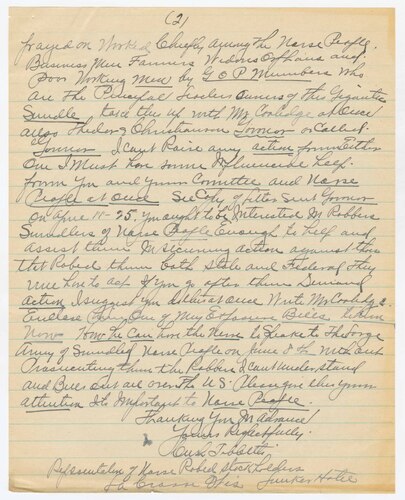 (2)
Frayed on Worked Chiefly among the Norse People.
Business Men Farmers Widows Orphans and
Poor Working Men by G O P Members Who
are the Principal Leaders owners of this Gigantic
Swindle take this up with Mr Coolidge at Once
also Theodore Christianson Govnor or called
Govnor I cant Raise any action from Either
One I Must have some Influencide help
from You and your Committee and Norse
People at Once See Copy of letter Sent Govnor
on April 11-25, You ought to be Interested In Robbers
Swindlers of Norse People Enough to help and
assist them In securing action against
that Robed them both State and Federal they
will have to act If you go after them Demand
Action I suggest you at Once Write Mr Coolidge &
Enclose One of My Explosive Bills
Now How he can have the Nerve to Speak to the Large
Army of Swindled Norse People on June 8th without
Prosecuting them the Robbers I cant understand
and Bills out are over the U.S. Please give this your
attention Its Important to Norse People.
Thanking You In advance
Yours Respectfully.
Tibbetts
Representative of Norse Robed Stock holders
La Crosse Wis Junker Hotel